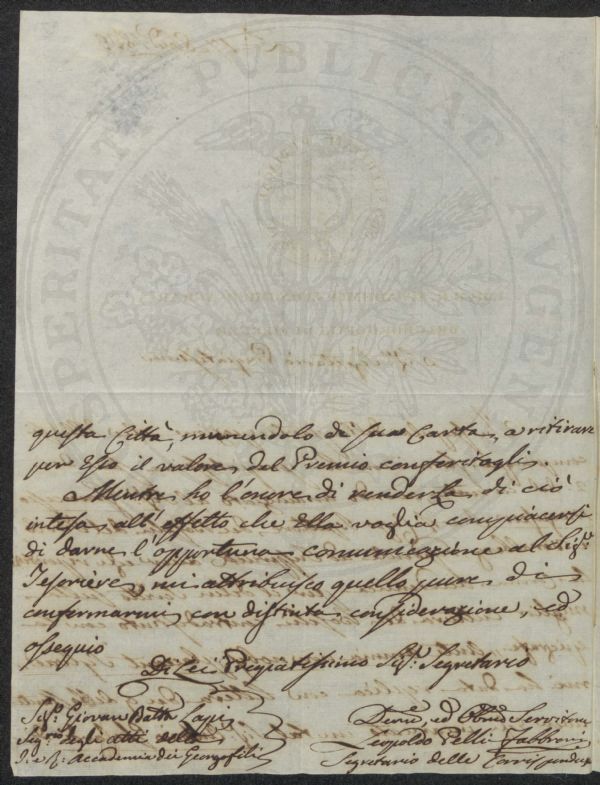 PROSPERITATI PUBLICAE AUGENDAE
questa Città, munendolo di sua Carta, a ritirare
per Esso il valore del Premio conferitogli
Mentre ho l'onore di renderla di ciò
intesa all'effetto che Ella voglia compiacersi
di darne l'opportuna comunicazione al Sig.r
Tesoriere, mi attribuisco quello pure di
confermarmi con distinta considerazione, ed
ossequio
Di Lei Pregiatissimo Sig.r Segretario
Sig.r Giovan Batta Lapi
Seg.rio degli atti della
I. e R. Accademia dei Georgofili
Dev.o ed Obb.o Servitore
Leopoldo Pelli Fabbroni
Segretario delle Corrispondenze